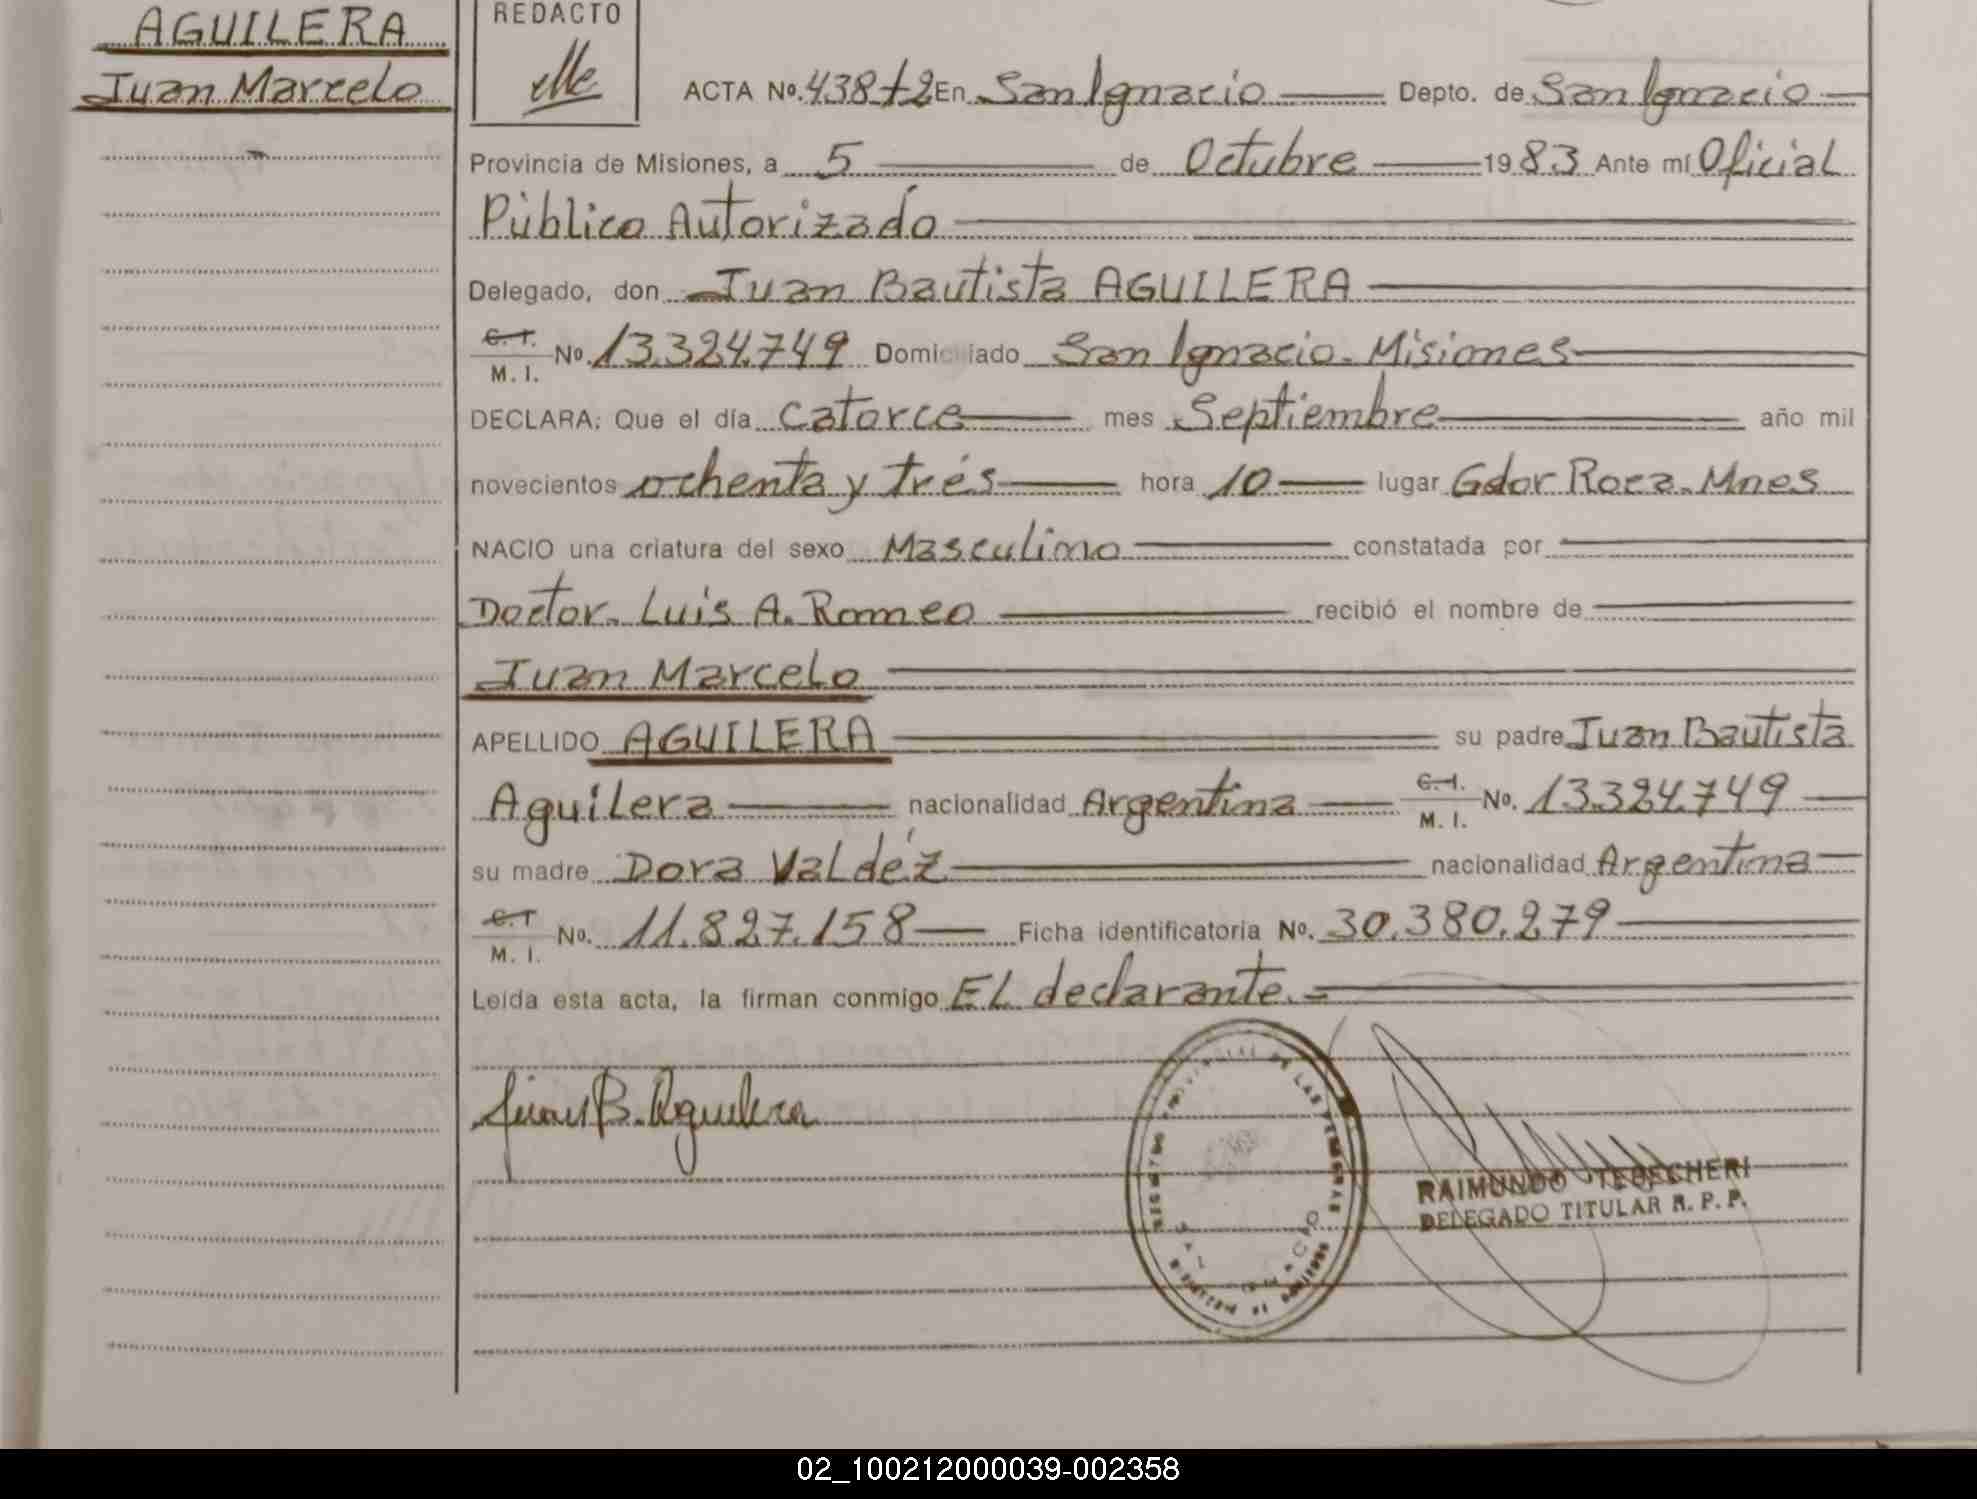 AGUILERA
Juan Marcelo
REDACTO
ACTA Nº. 438 t2 En San Ignacio Depto. de San Ignacio
Provincia de Misiones, a 5 de Octubre 1983 Ante mí Oficial
Público Autorizado
Delegado, don Juan Bautista AGUILERA
C. I.
M. I. Nº. 13.324.749 Domiciliado San Ignacio - Misiones
DECLARA: Que el día catorce mes Septiembre año mil
novecientos ochenta y trés hora 10 lugar Gdor Roca - Mnes
NACIO una criatura del sexo Masculino constatada por
Doctor. Luis A. Romeo recibió el nombre de
Juan Marcelo
APELLIDO AGUILERA su padre Juan Bautista
Aguilera nacionalidad Argentina C. I. M. I. Nº. 13.324.749
su madre Dora Valdéz nacionalidad Argentina
C. I.
M. I. Nº. 11.827.158 Ficha identificatoria Nº. 30.380.279
Leída esta acta, la firman conmigo EL declarante.=
Juan B. Aguilera
REGISTRO PROVINCIAL DE LAS PERSONAS
RAIMUNDO TEDESCHERI
DELEGADO TITULAR R. P. P.
02_100212000039-002358